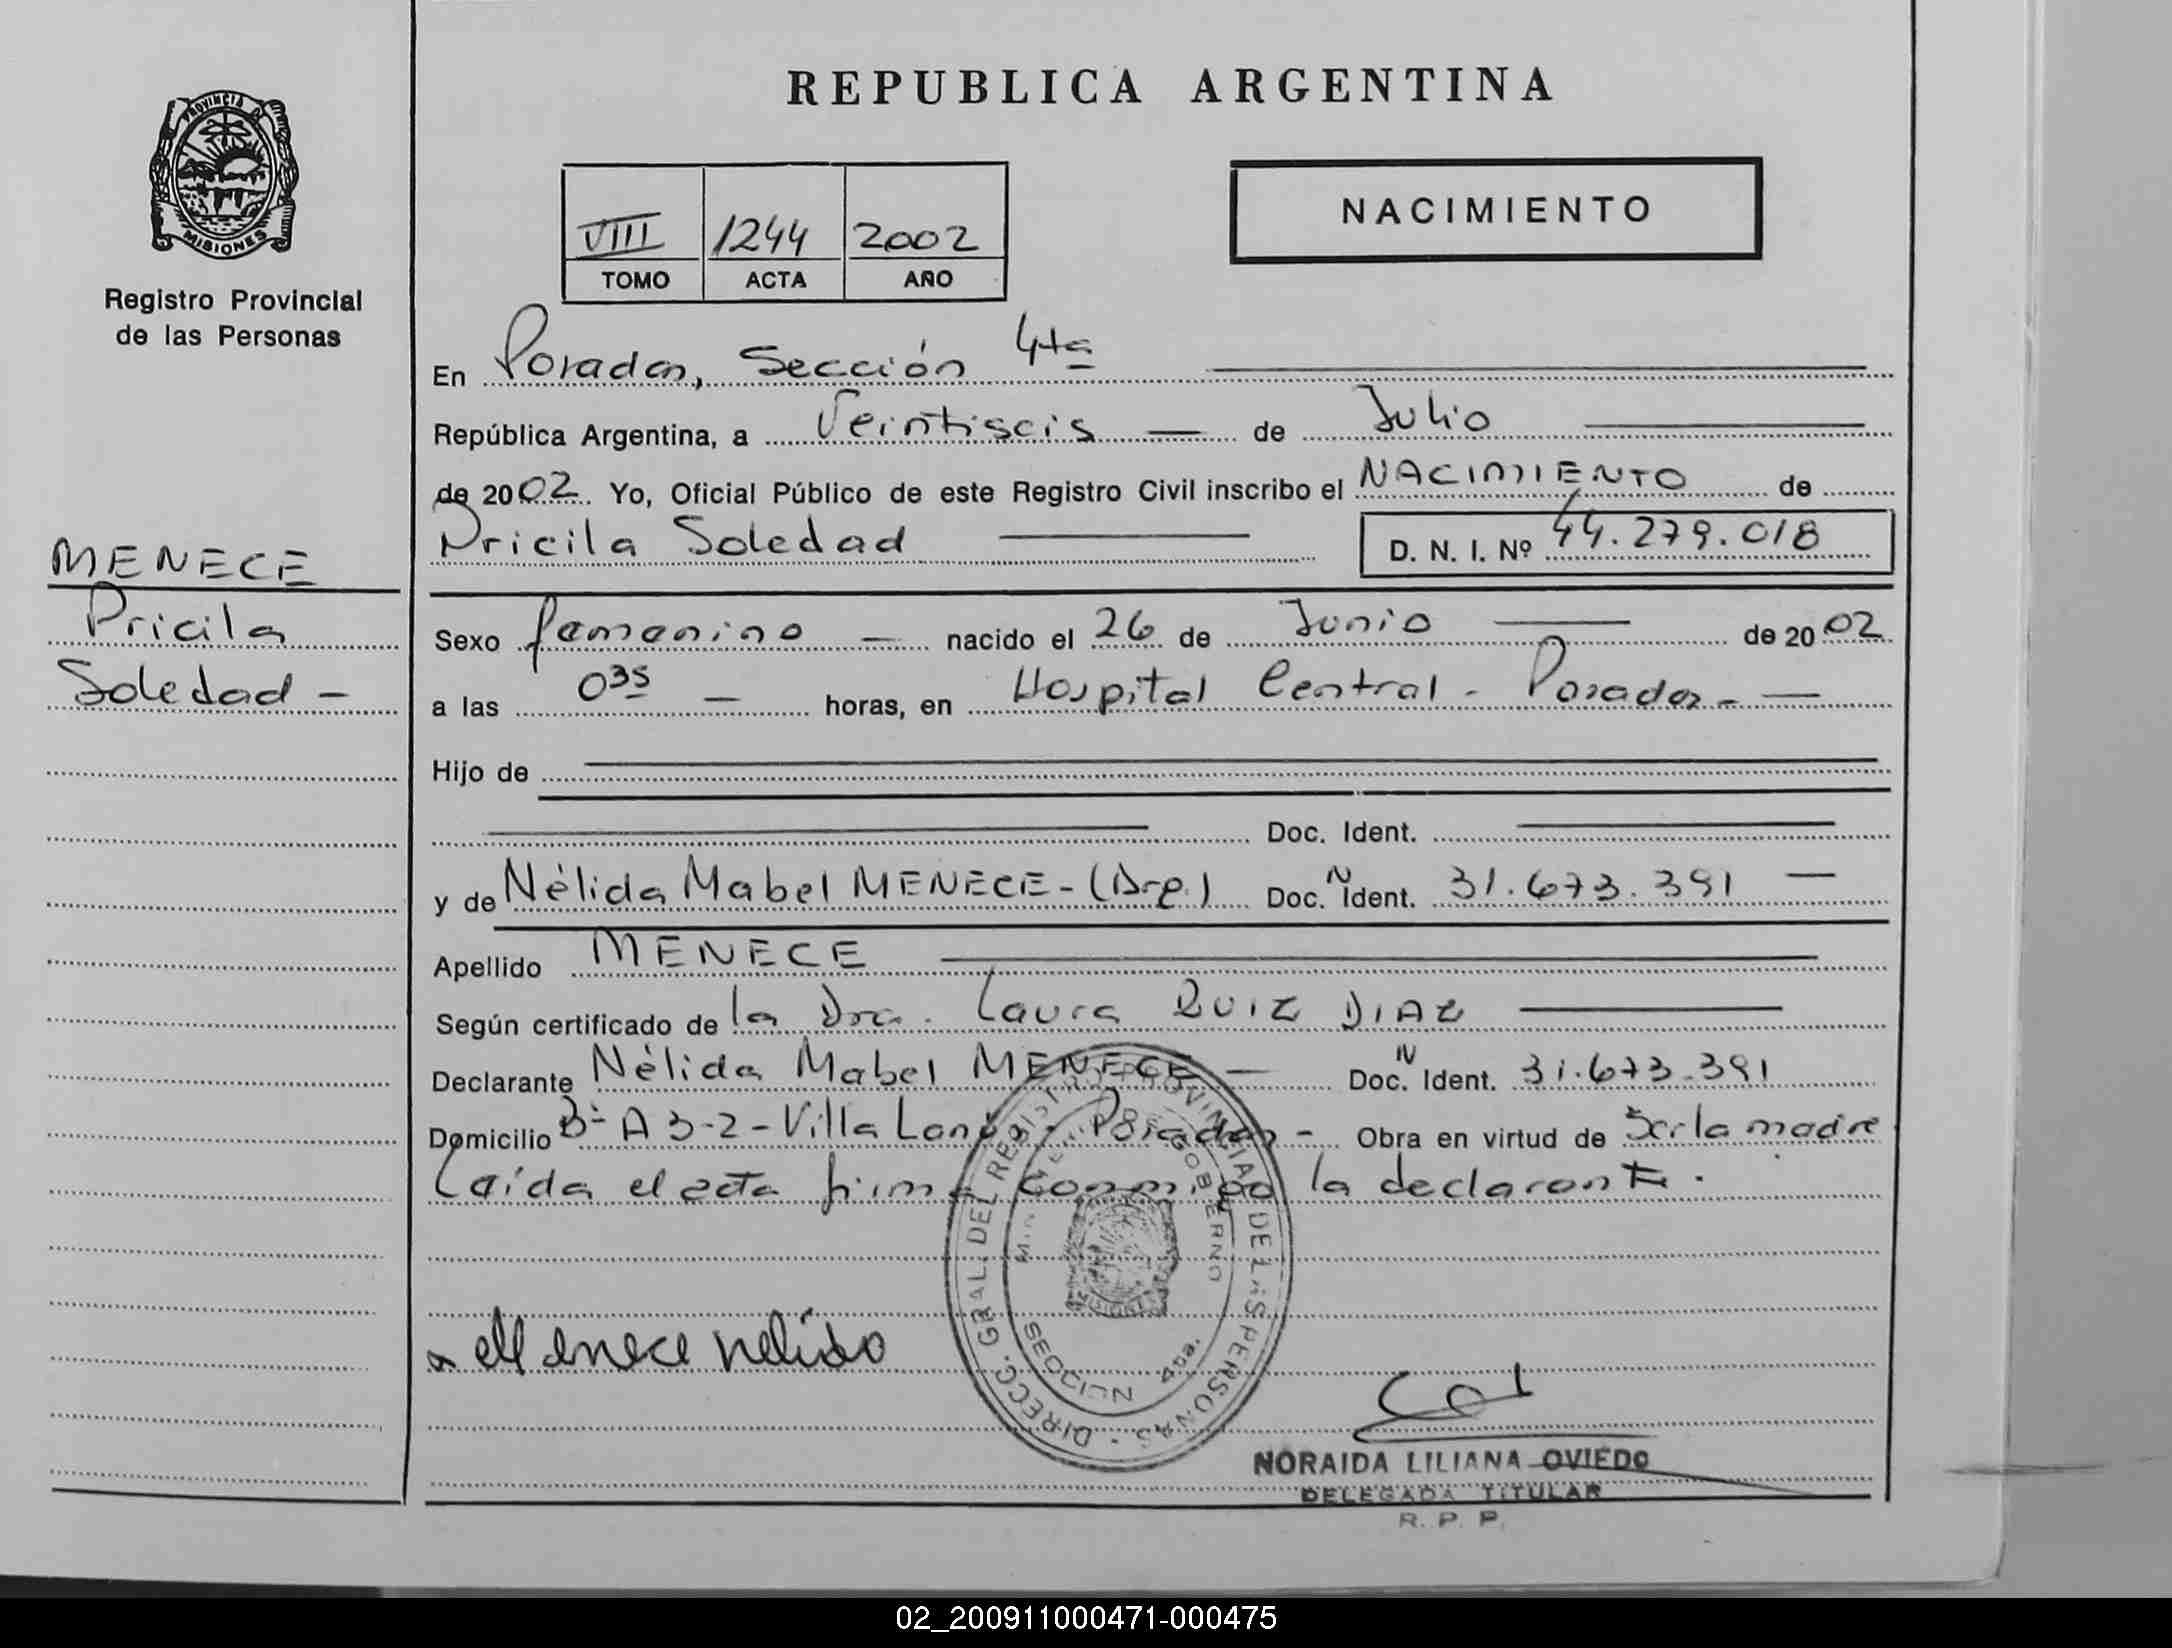 REPUBLICA ARGENTINA
PROVINCIA DE
MISIONES
Registro Provincial
de las Personas
VIII 1244 2002
TOMO ACTA AÑO
NACIMIENTO
En Posadas, Sección 4ta
República Argentina, a Veintiseis de Julio
de 2002. Yo, Oficial Público de este Registro Civil inscribo el NACIMIENTO de
Pricila Soledad
D. N. I. Nº 44.279.018
MENECE
Pricila
Soledad -
Sexo femenino nacido el 26 de Junio de 2002
a las 035 horas, en Hospital Central - Posadas -
Hijo de
Doc. Ident.
y de Nélida Mabel MENECE - (Arg.) Doc. N Ident. 31.673.391
Apellido MENECE
Según certificado de la Dra. Laura RUIZ DIAZ
Declarante Nélida Mabel MENECE - Doc. N Ident. 31.673.391
Domicilio Bº A 3-2 - Villa Posadas - Obra en virtud de Ser la madre
Laída el acta firma conmigo la declarante.
DIRECC. GRAL. DEL REGISTRO PROVINCIAL DE LAS PERSONAS
GOBIERNO
SECCION 4ta.
Menece nelida
NORAIDA LILIANA OVIEDO
DELEGADA TITULAR
R. P. P.
02_200911000471-000475